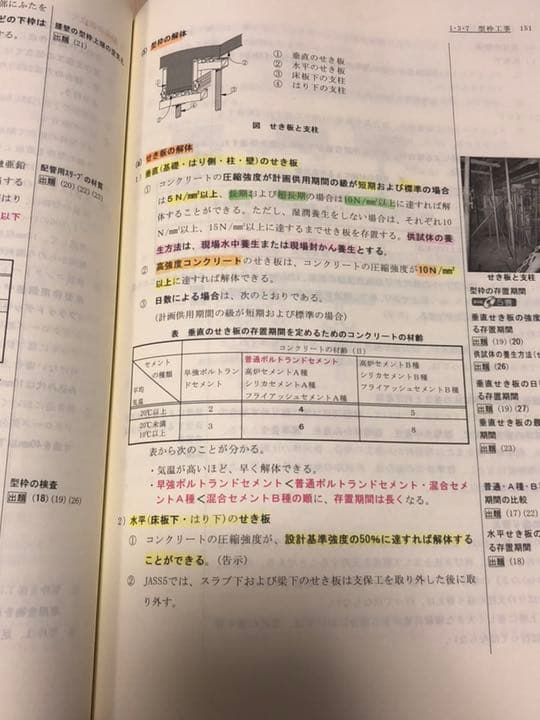 部にふたを
どの下枠は
腰壁の型枠上端の
出題 (21)
亜鉛
配管用スリーブの材質
出題 (20)(22)(23)
型枠の検査
出題 (18)(19)(26)
1・3・7 型枠工事 151
型枠の解体
① 垂直のせき板
② 水平のせき板
③ 床板下の支柱
④ はり下の支柱
図 せき板と支柱
せき板の解体
1) 垂直(基礎・はり側・柱・壁)のせき板
① コンクリートの圧縮強度が計画供用期間の級が短期および標準の場合
は5N/mm²以上、長期および超長期の場合は10N/mm²以上に達すれば解
体することができる。ただし、湿潤養生をしない場合は、それぞれ10
N/mm²以上、15N/mm²以上に達するまでせき板を存置する。供試体の養
生方法は、現場水中養生または現場封かん養生とする。
② 高強度コンクリートのせき板は、コンクリートの圧縮強度が10N/mm²
以上に達すれば解体できる。
③ 日数による場合は、次のとおりである。
(計画供用期間の級が短期および標準の場合)
表 垂直のせき板の存置期間を定めるためのコンクリートの材齢
コンクリートの材齢(日)
セメント
の種類
平均
気温
早強ポルトラン
ドセメント
普通ポルトランドセメント
高炉セメントA種
シリカセメントA種
フライアッシュセメントA種
高炉セメントB種
シリカセメントB種
フライアッシュセメントB種
20℃以上 2 4 5
20℃未満
10℃以上 3 6 8
表から次のことが分かる。
・気温が高いほど、早く解体できる。
・早強ポルトランドセメント<普通ポルトランドセメント・混合セメ
ントA種<混合セメントB種の順に、存置期間は長くなる。
2) 水平(床板下・はり下)のせき板
① コンクリートの圧縮強度が、設計基準強度の50%に達すれば解体する
ことができる。(告示)
② JASS5では、スラブ下および梁下のせき板は支保工を取り外した後に取
り外す。
せき板と支柱
型枠の存置期間
垂直せき板の強度
る存置期間
出題 (19)(20)
供試体の養生方法(せ
出題 (26)
垂直せき板の日
る存置期間
出題 (19)(27)
垂直せき板の最
期間
出題 (23)
普通・A種・B
期間の比較
出題 (17)(22)
水平せき板の強
る存置期間
出題 (18)